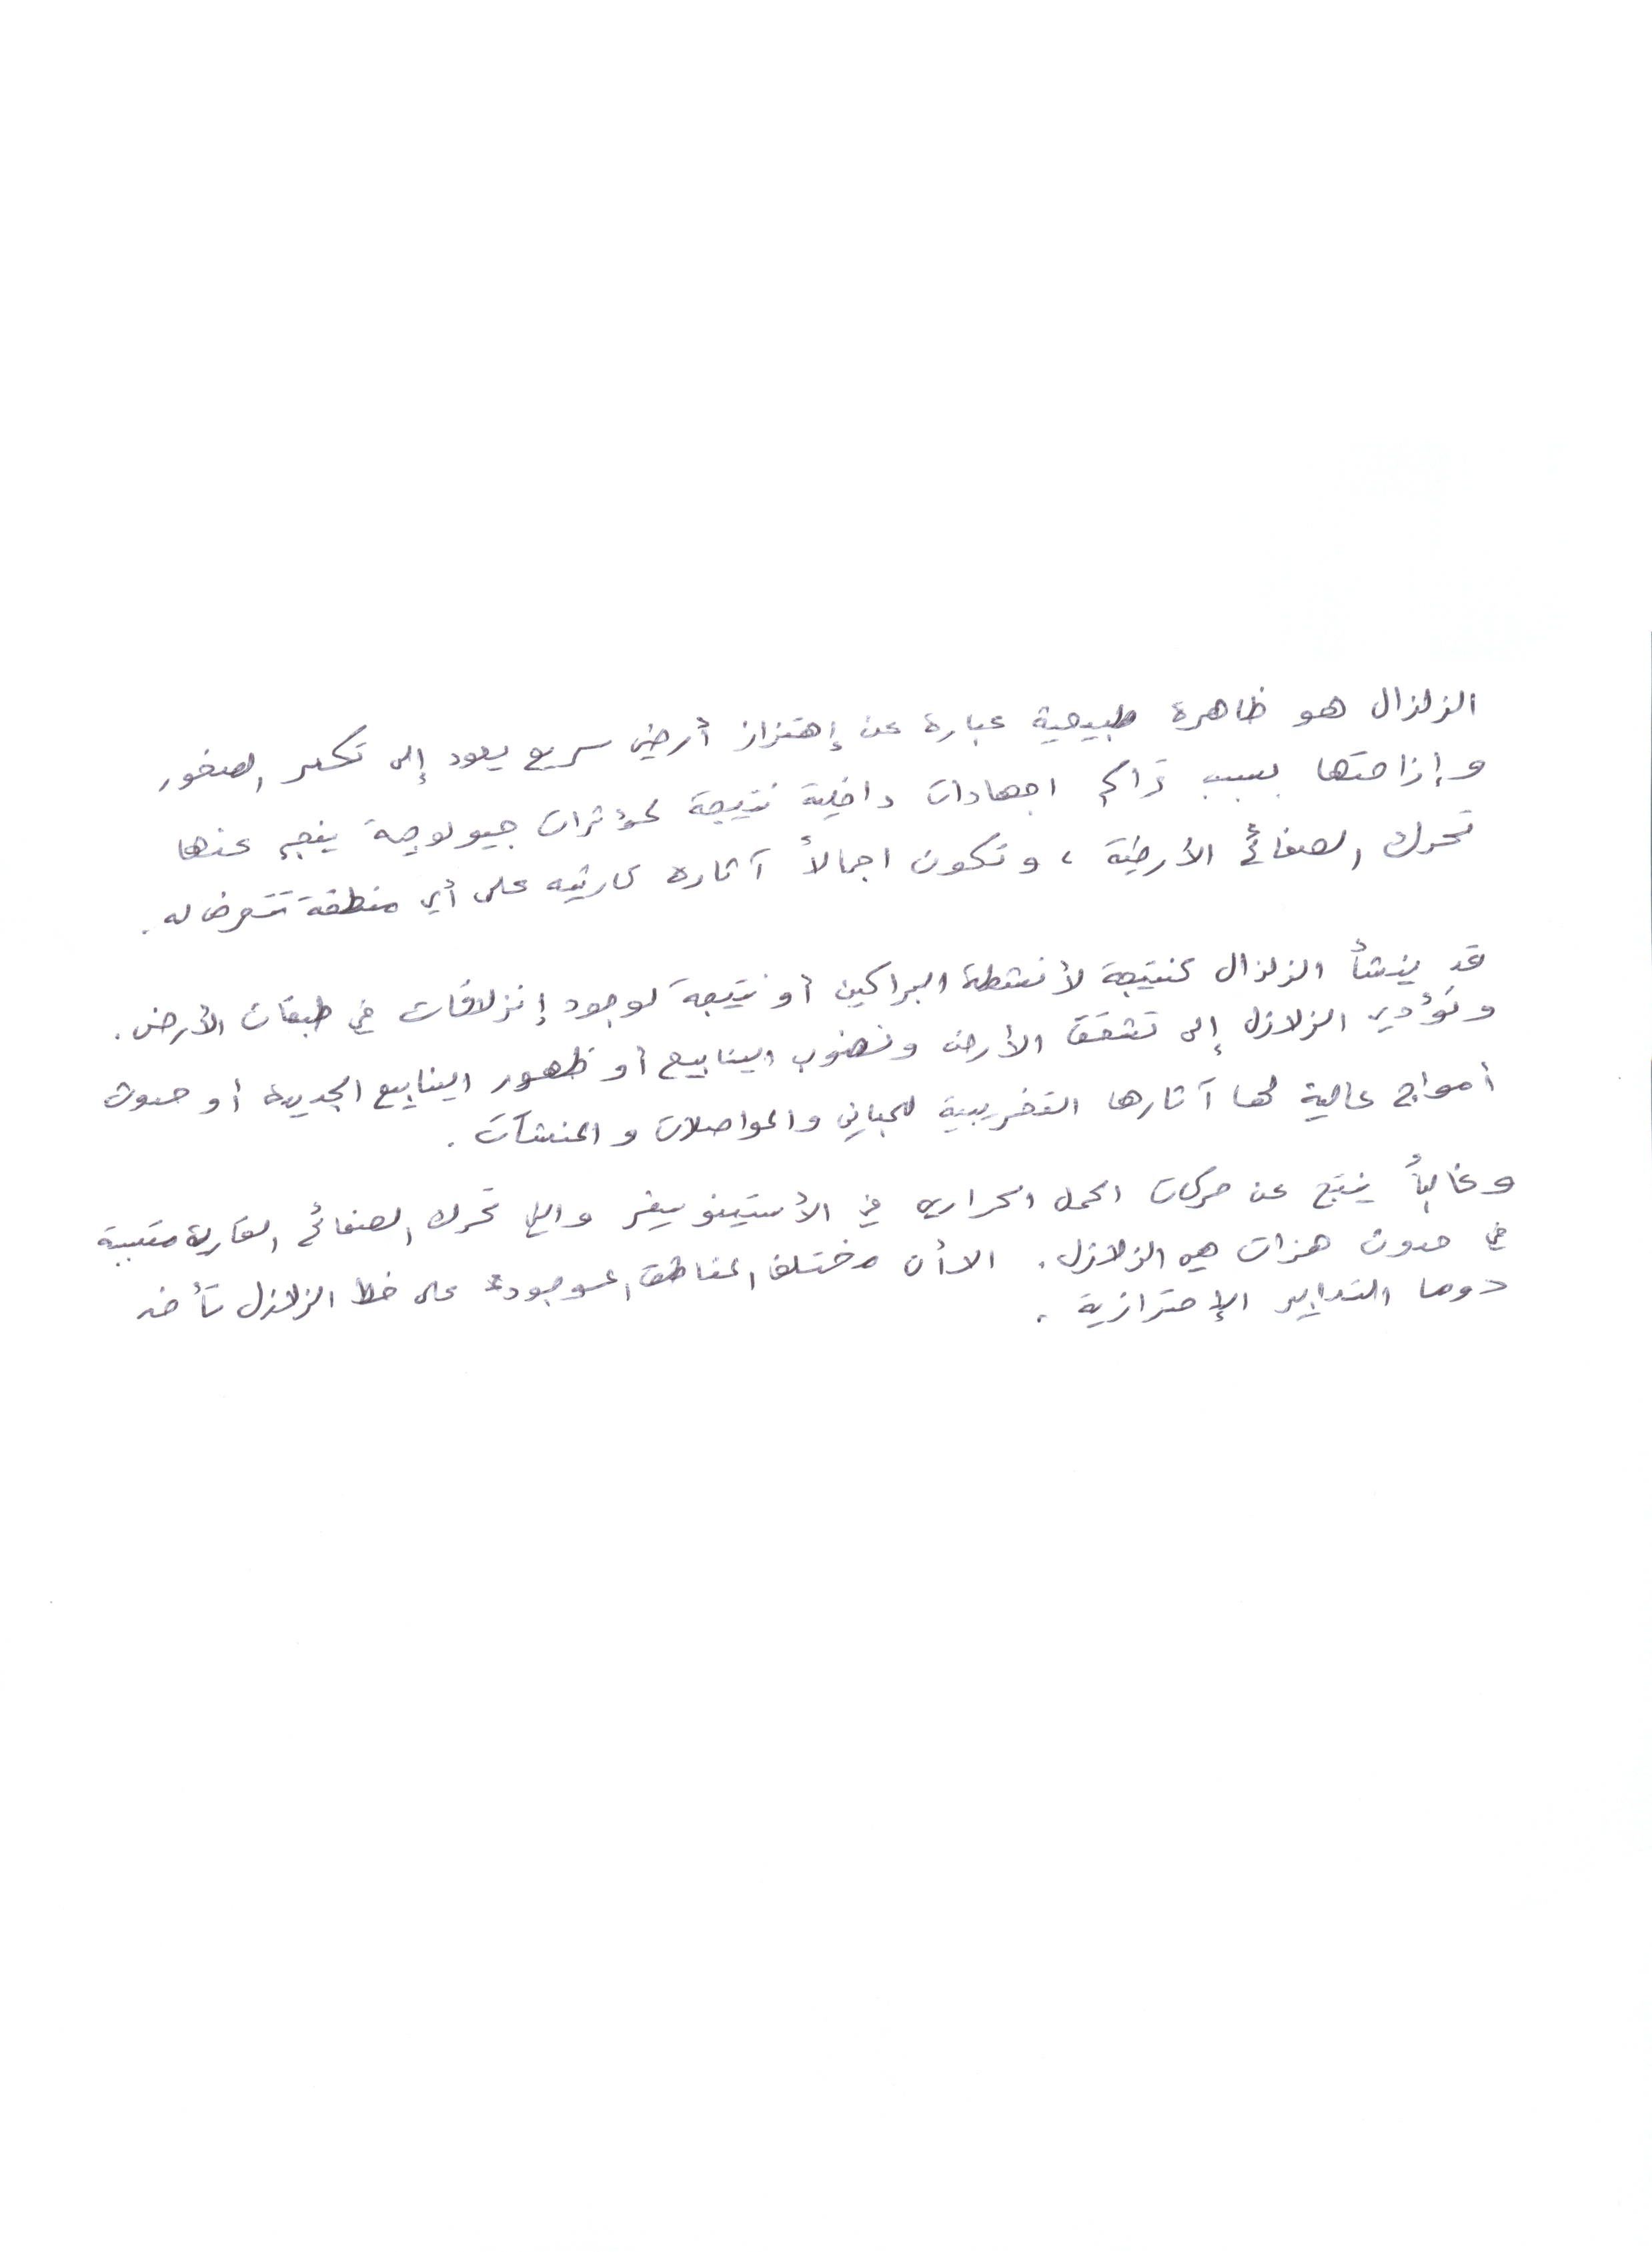 الزلزال هو ظاهرة طبيعية عبارة عن إهتزاز أرضي سريع يعود إلى تكسر الصخور
وإزاحتها بسبب تراكم اجهادات داخلية نتيجة لمؤثرات جيولوجية ينجم عنها
تحرك الصفائح الأرضية ، وتكون اجمالاً آثاره كارثيه على أي منطقة تتعرض له .
قد ينشأ الزلزال كنتيجة لأنشطة البراكين أو نتيجة لوجود إنزلاقات في طبقات الأرض .
وتؤدي الزلازل إلى تشقق الأرض ونضوب الينابيع أو ظهور الينابيع الجديدة أو حدوث
أمواج عالية لها آثارها التخريبية للمباني والمواصلات والمنشآت .
وغالباً ينتج عن حركات الحمل الحراري في الأستينوسفير والتي تحرك الصفائح القارية متسببة
في حدوث هزات هي الزلازل . الا أن مختلف المناطق الموجودة على خط الزلازل تأخذ
دوما التدابير الإحترازية .